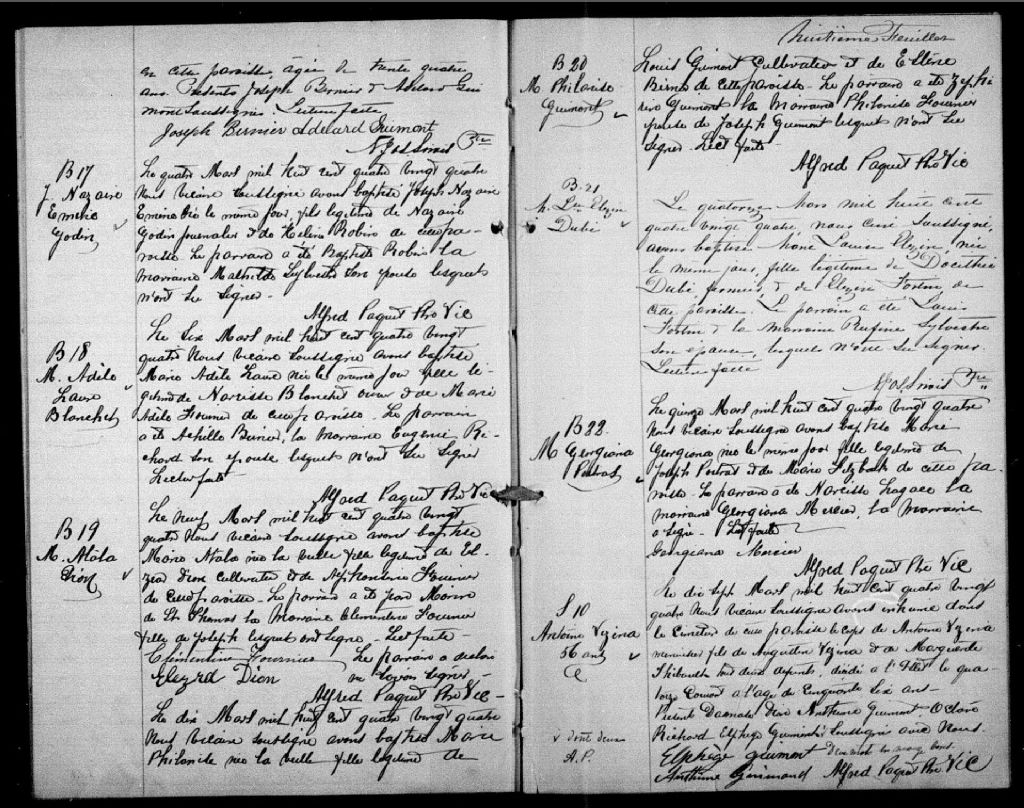 en cette paroisse, agée de trente quatre
ans. Présents Joseph Bernier & Adelard Gui
mont soussignés. Lecture faite
Joseph Bernier Adelard Guimont
Ptre
B 17
J. Nazaire
Emérie
Godin
Le quatre Mars mil huit cent quatre vingt quatre
Nous vicaire soussigné avons baptisé Joseph Nazaire
Emérie né le même jour, fils légitime de Nazaire
Godin journalier & de Hélène Robin de cette pa-
roisse. Le parrain a été Baptiste Robin la
marraine Mathilde Sylvestre son épouse lesquels
n'ont su signer.
Alfred Paquet Ptre Vic
B 18
M. Adèle
Laure
Blanchet
Le Six Mars mil huit cent quatre vingt
quatre Nous vicaire soussigné avons baptisé
Marie Adèle Laure née le même jour fille lé-
gitime de Narcisse Blanchet & de Marie
Adèle Fournier de cette paroisse. Le parrain
a été Achille Bernier, la marraine Eugénie Ri-
chard son épouse lesquels n'ont su signer
Lecture faite
Alfred Paquet Ptre Vic
B 19
M. Atala
Dion
Le neuf Mars mil huit cent quatre vingt
quatre Nous vicaire soussigné avons baptisé
Marie Atala née la veille fille légitime de El-
zéar Dion cultivateur et de Fournier
de cette paroisse. Le parrain a été Jean Morin
de St Thomas la Marraine Clémentine Fournier
fille de Joseph lesquels ont signé. Lect faite.
Clémentine Fournier Le parrain a déclaré
Elezrd Dion ne savoir signer.
Alfred Paquet Ptre Vic
Le dix Mars mil huit cent quatre vingt quatre
Nous vicaire soussigné avons baptisé Marie
Philonise née la veille fille légitime de
huitième Feuillet
B 20
M Philonise
Guimont
Louis Guimont Cultivateur et de
de cette paroisse. Le parrain a été Zéphi-
rin Guimont la Marraine Philonise Fournier
épouse de Joseph Guimont lesquels n'ont su
signer Lect faite
Alfred Paquet Ptre Vic
B. 21
M. Lse Elzire
Dubé
Le quatorze Mars mil huit cent
quatre vingt quatre, nous curé soussigné,
avons baptisé Marie Louise Elzire, née
le même jour, fille légitime de Docithée
Dubé fermier, & de Elzire Fortin de
cette paroisse. Le parrain a été Louis
Fortin & la marraine Rufine Sylvestre
son épouse, lesquels n'ont su signer.
Lecture faite
Ptre
B 22
M Georgiana
Le quinze Mars mil huit cent quatre vingt quatre
Nous vicaire soussigné avons baptisé Marie
Georgiana née le même jour fille légitime de
Joseph et de Marie de cette pa-
roisse. Le parrain a été Narcisse Lagacé la
marraine Georgiana Mercier, la Marraine
a signé. Lect faite
Georgiana Mercier
Alfred Paquet Ptre Vic
S 10
Antoine Vézina
56 ans
Le dix sept Mars mil huit cent quatre vingt
quatre Nous vicaire soussigné avons inhumé dans
le cimetière de cette paroisse le corps de Antoine Vézina
menuisier fils de Augustin Vézina & de Marguerite
Thibault tous deux défunts, décédé à l'Islet le qua-
torze courant à l'age de Cinquante Six ans.
Présents Dion Anthime Guimont
Richard Elphège Guimont Soussignés avec Nous.
Elphège guimont
Anthime Guimond Alfred Paquet Ptre Vic
v dont deux
A.P.